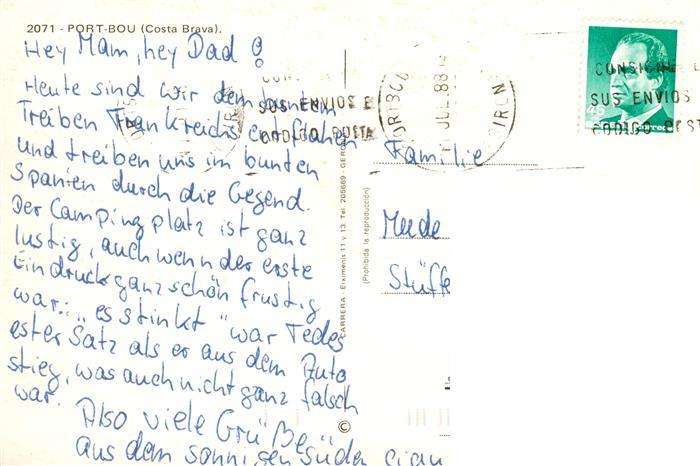 2071 - PORT-BOU (Costa Brava).
Hey Mam, hey Dad !
Heute sind wir dem bunten
Treiben Frankreichs entflohen
und treiben uns im bunten
Spanien durch die Gegend.
Der Campingplatz ist ganz
lustig, auch wenn der erste
Eindruck ganz schön frustig
war: "es stinkt" war Tedes
erster Satz als er aus dem Auto
stieg, was auch nicht ganz falsch
war.
Also viele Grüße
aus dem sonnigen Süden ciau
CARRERA - Eximenis 11 y 13. Tel. 205669 - GERONA
(Prohibida la reproducción)
©
SUS ENVIOS E
CODIGO POSTA
JUL 88
CONSIGNE E
SUS ENVIOS
CODIGO POST
Familie
Mede
Stüffe